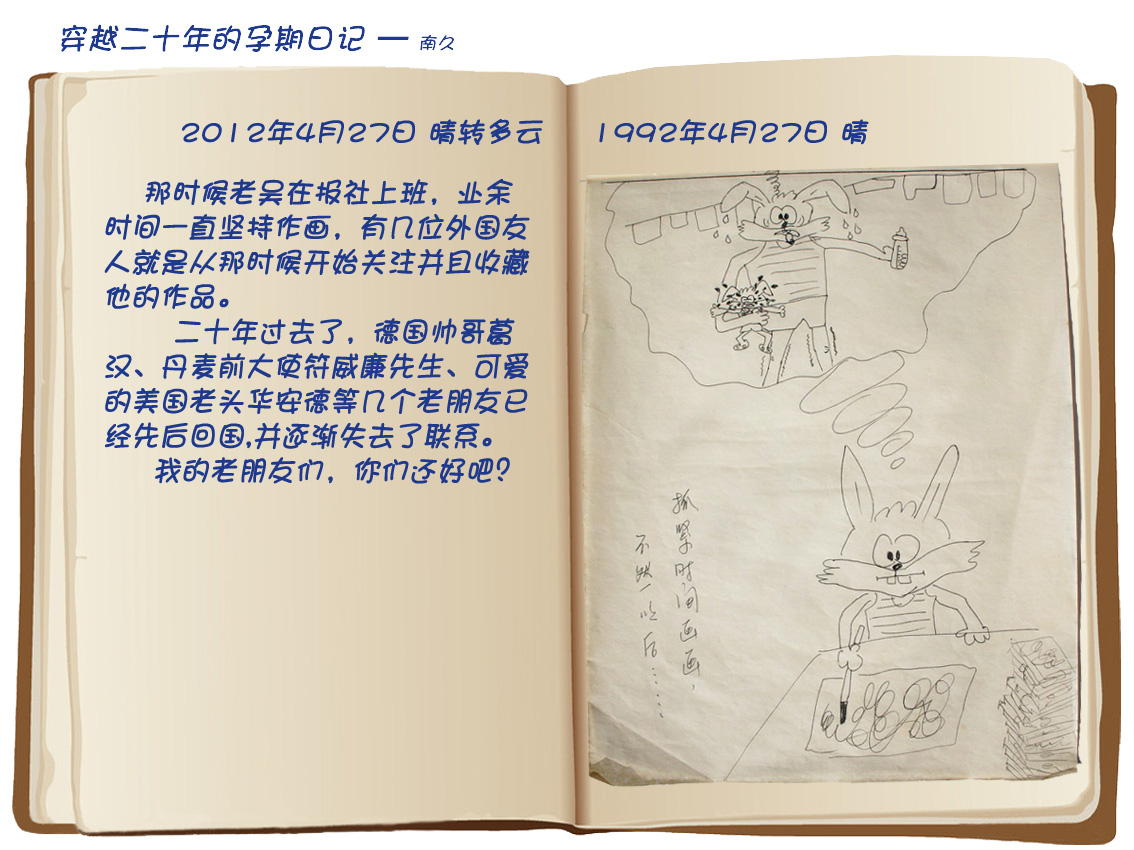 穿越二十年的孕期日记 — 南久
2012年4月27日 晴转多云
那时候老吴在报社上班，业余
时间一直坚持作画，有几位外国友
人就是从那时候开始关注并且收藏
他的作品。
二十年过去了，德国帅哥葛
汉、丹麦前大使符威廉先生、可爱
的美国老头华安德等几个老朋友已
经先后回国,并逐渐失去了联系。
我的老朋友们，你们还好吧？
1992年4月27日 晴
抓紧时间画画，
不然以后……